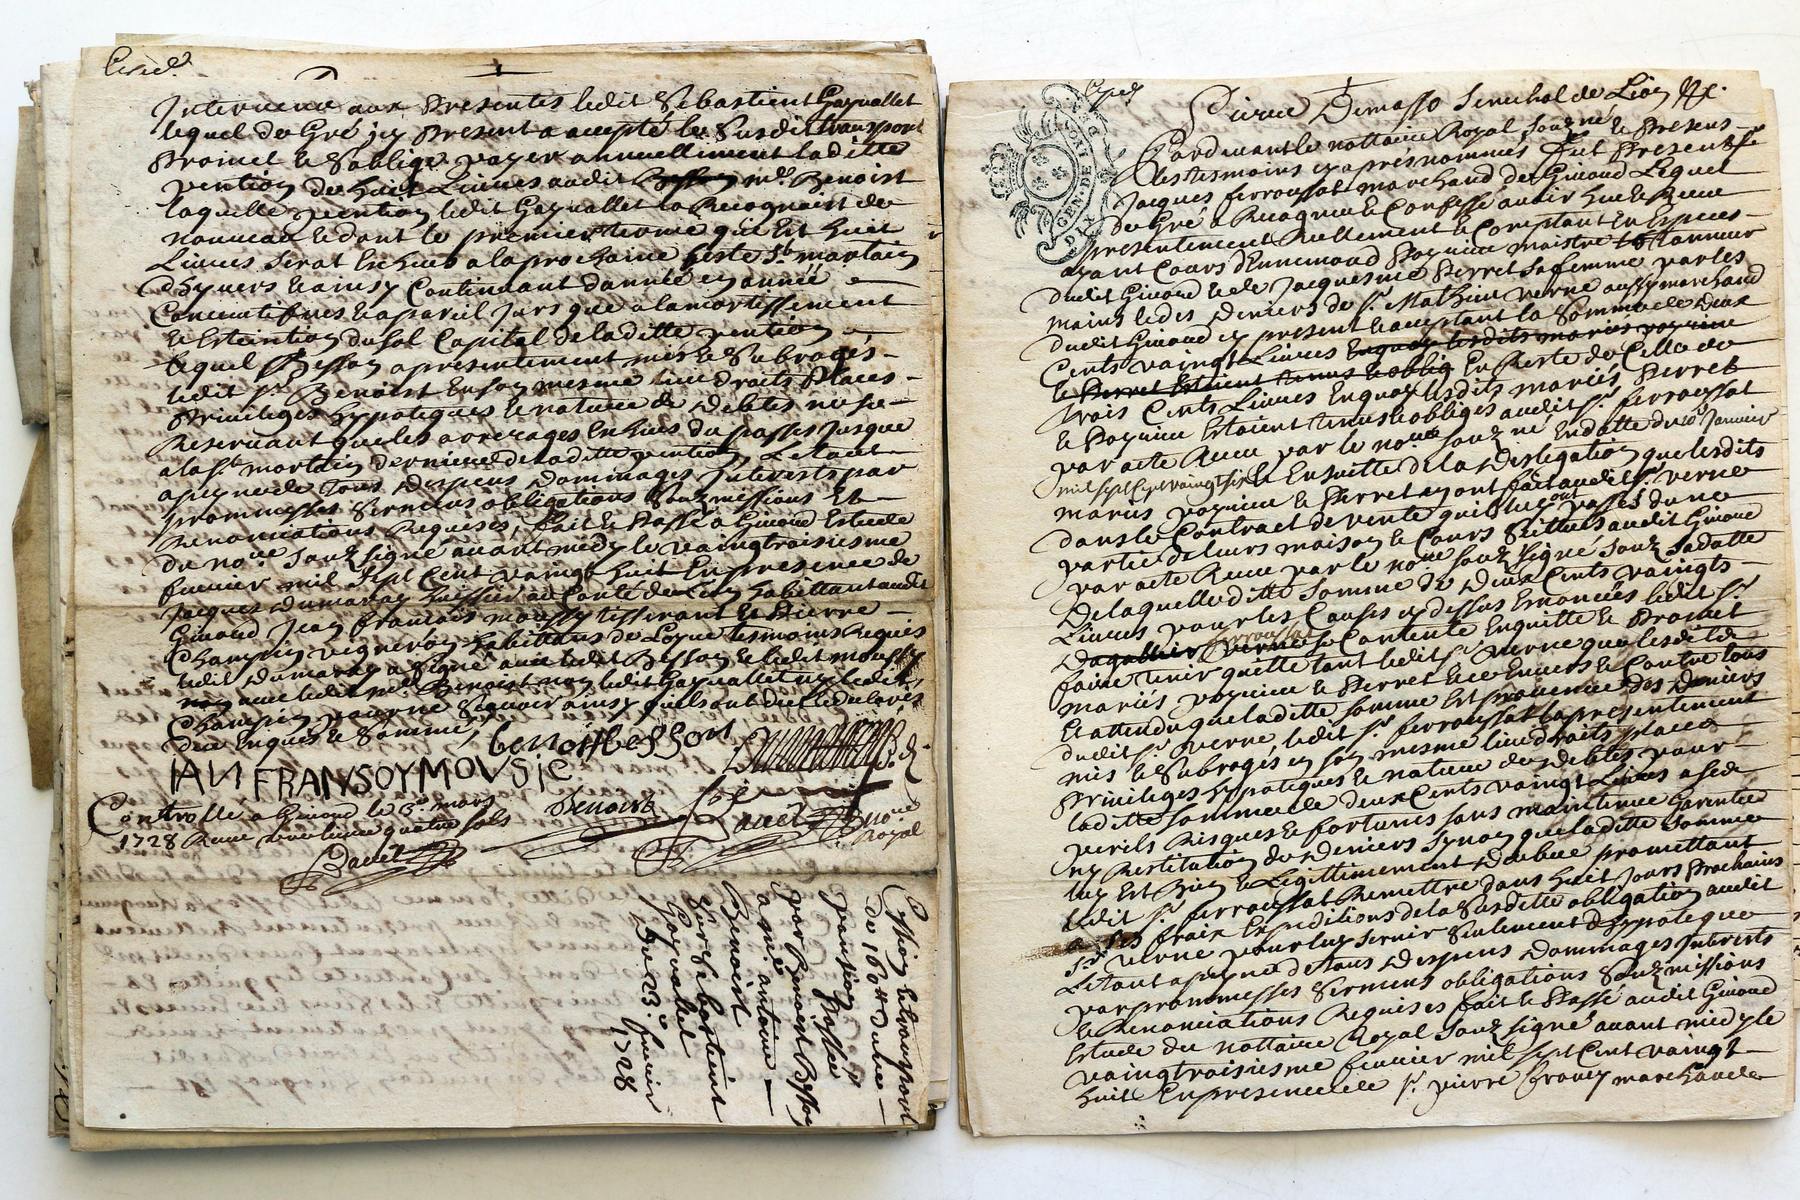 Intervenu aux presentes ledit Sebastient Gayvallet
lequel de Gré icy present a accepté le susdit transport
promet & soblige payer annuellement laditte
pention de huit Livres audit md. Benoist
laquelle pention ledit Gayvallet la Recognoist de
nouveau & dont le premier terme qui est huit
Livres serat Escheu a la prochaine feste St. martain
dhyvers & ainsy Continuant dannée en année
Concecutifves & apareil jurs que a lamortissement
& Esteintion du sol Capital de laditte pention
lequel Besson a presentement mis & subrogés
ledit Sr. Benoist En son mesme lieu droits places
privileges hypoteques & nature de debtes ne se
Reservant que les arrerages Escheus du passes jusque
a la St. martain derniere de laditte pention, Le tout
a peyne de tous despens dommages Interests par
prommesses sermens obligations soubzmissions Et
Renonciations Requises, fait & passé a Givord Estude
du nore. souz signé avant midy le vaingtroisiesme
fevrier mil sept Cent vaingt huit En presence de
jacques dumaray huissier au Conté de Lion habittant audit
Givord jean francois moussy tisserant & Pierre
Champin vigneron habittans de Loyre tesmoins Requis
ledit dumaray a signé avec ledit Besson & ledit moussy
avec ledit md. Benoist non ledit Gayvallet ny ledit
Champin pour ne sçavoir ainsy quils ont dit & declarés
deux Enquis & sommés
benoist besson
IAN FRANSOY MOVSIE
Benoist
Davet nore. Royal
Controllé a Givord le 3e. mars
1728 Receu une livre quatre sols
Davet
Cession & transport
de 160 tt dune
pention passée
par Benoist Besson
a md. antoine
Benoist
sur sebastient
Gayvallet
Du 23e. fevrier
1728
GEN. DE
Pierre Demasso Senechal de Lion &c.
Pardevant le nottaire Royal souzné. & Presens
les tesmoins cy apres nommés fut Present Sr.
Jacques ferroussat marchand de Givord Lequel
de Gré a Recognu & Confessé avoir heu & Receu
presentement Reellement & Comptant En Especes
ayant Cours dEnnemond Poyuiue maistre tanneur
dudit Givord & de Jacquesme Perret sa femme par les
mains & des deniers de Sr. Mathieu verne aussy marchand
dudit Givord cy present & acceptant la somme de deux
Cents vaingt Livres Enquoy lesdits mariés poyuiue
& Perret Estoient tenus & oblig En Reste de Celle de
trois Cents Livres Enquoy lesdits mariés Perret
& Poyuiue Estoient tenus & obligés audit Sr. ferroussat
par acte Receu par le nore. souz né En datte du 10e Janvier
mil sept Cent vaingt six & Ensuitte de la deslegation que lesdits
mariés poyuiue & Perret ayont fait audit Sr. verne
dans le Contract de vente quils luy ont passés dune
partie de leurs maison & Cours scittués audit Givord
par acte Receu par le nore souz signé souz sa datte
De laquelle ditte somme de deux Cents vaingts
Livres pour les Causes cy dessus Enoncées ledit Sr.
ferroussat se Contente Enquitte & Promet
faire tenir quitte tant ledit Sr. verne que lesdits
mariés poyuiue & Perret & Envers & Contre tous
Et attendu que laditte somme Est provenue des deniers
dudit Sr. verne, ledit Sr. ferroussat la presentement
mis & subrogés en son mesme lieu droits places
privileges hypoteques & nature de debtes pour
laditte somme de deux Cents vaingt Livres a ses
perils Risques & fortunes sans maintenue Garentie
ny Restitution de deniers synon que laditte somme
luy Est bien & Legittimement deheue promettant
ledit Sr. ferroussat Remettre dans huit jours prochains
a ses fraix Expeditions de la susditte obligation audit
Sr. verne pour luy servir seulement dhypoteque
Le tout a peyne de tous despens dommages Interests
par prommesses sermens obligations souzmissions
& Renonciations Requises fait & passé audit Givord
Estude du nottaire Royal souz signé avant midy le
vaingtroisiesme fevrier mil sept Cent vaingt
huit En presence de Sr. pierre marchand